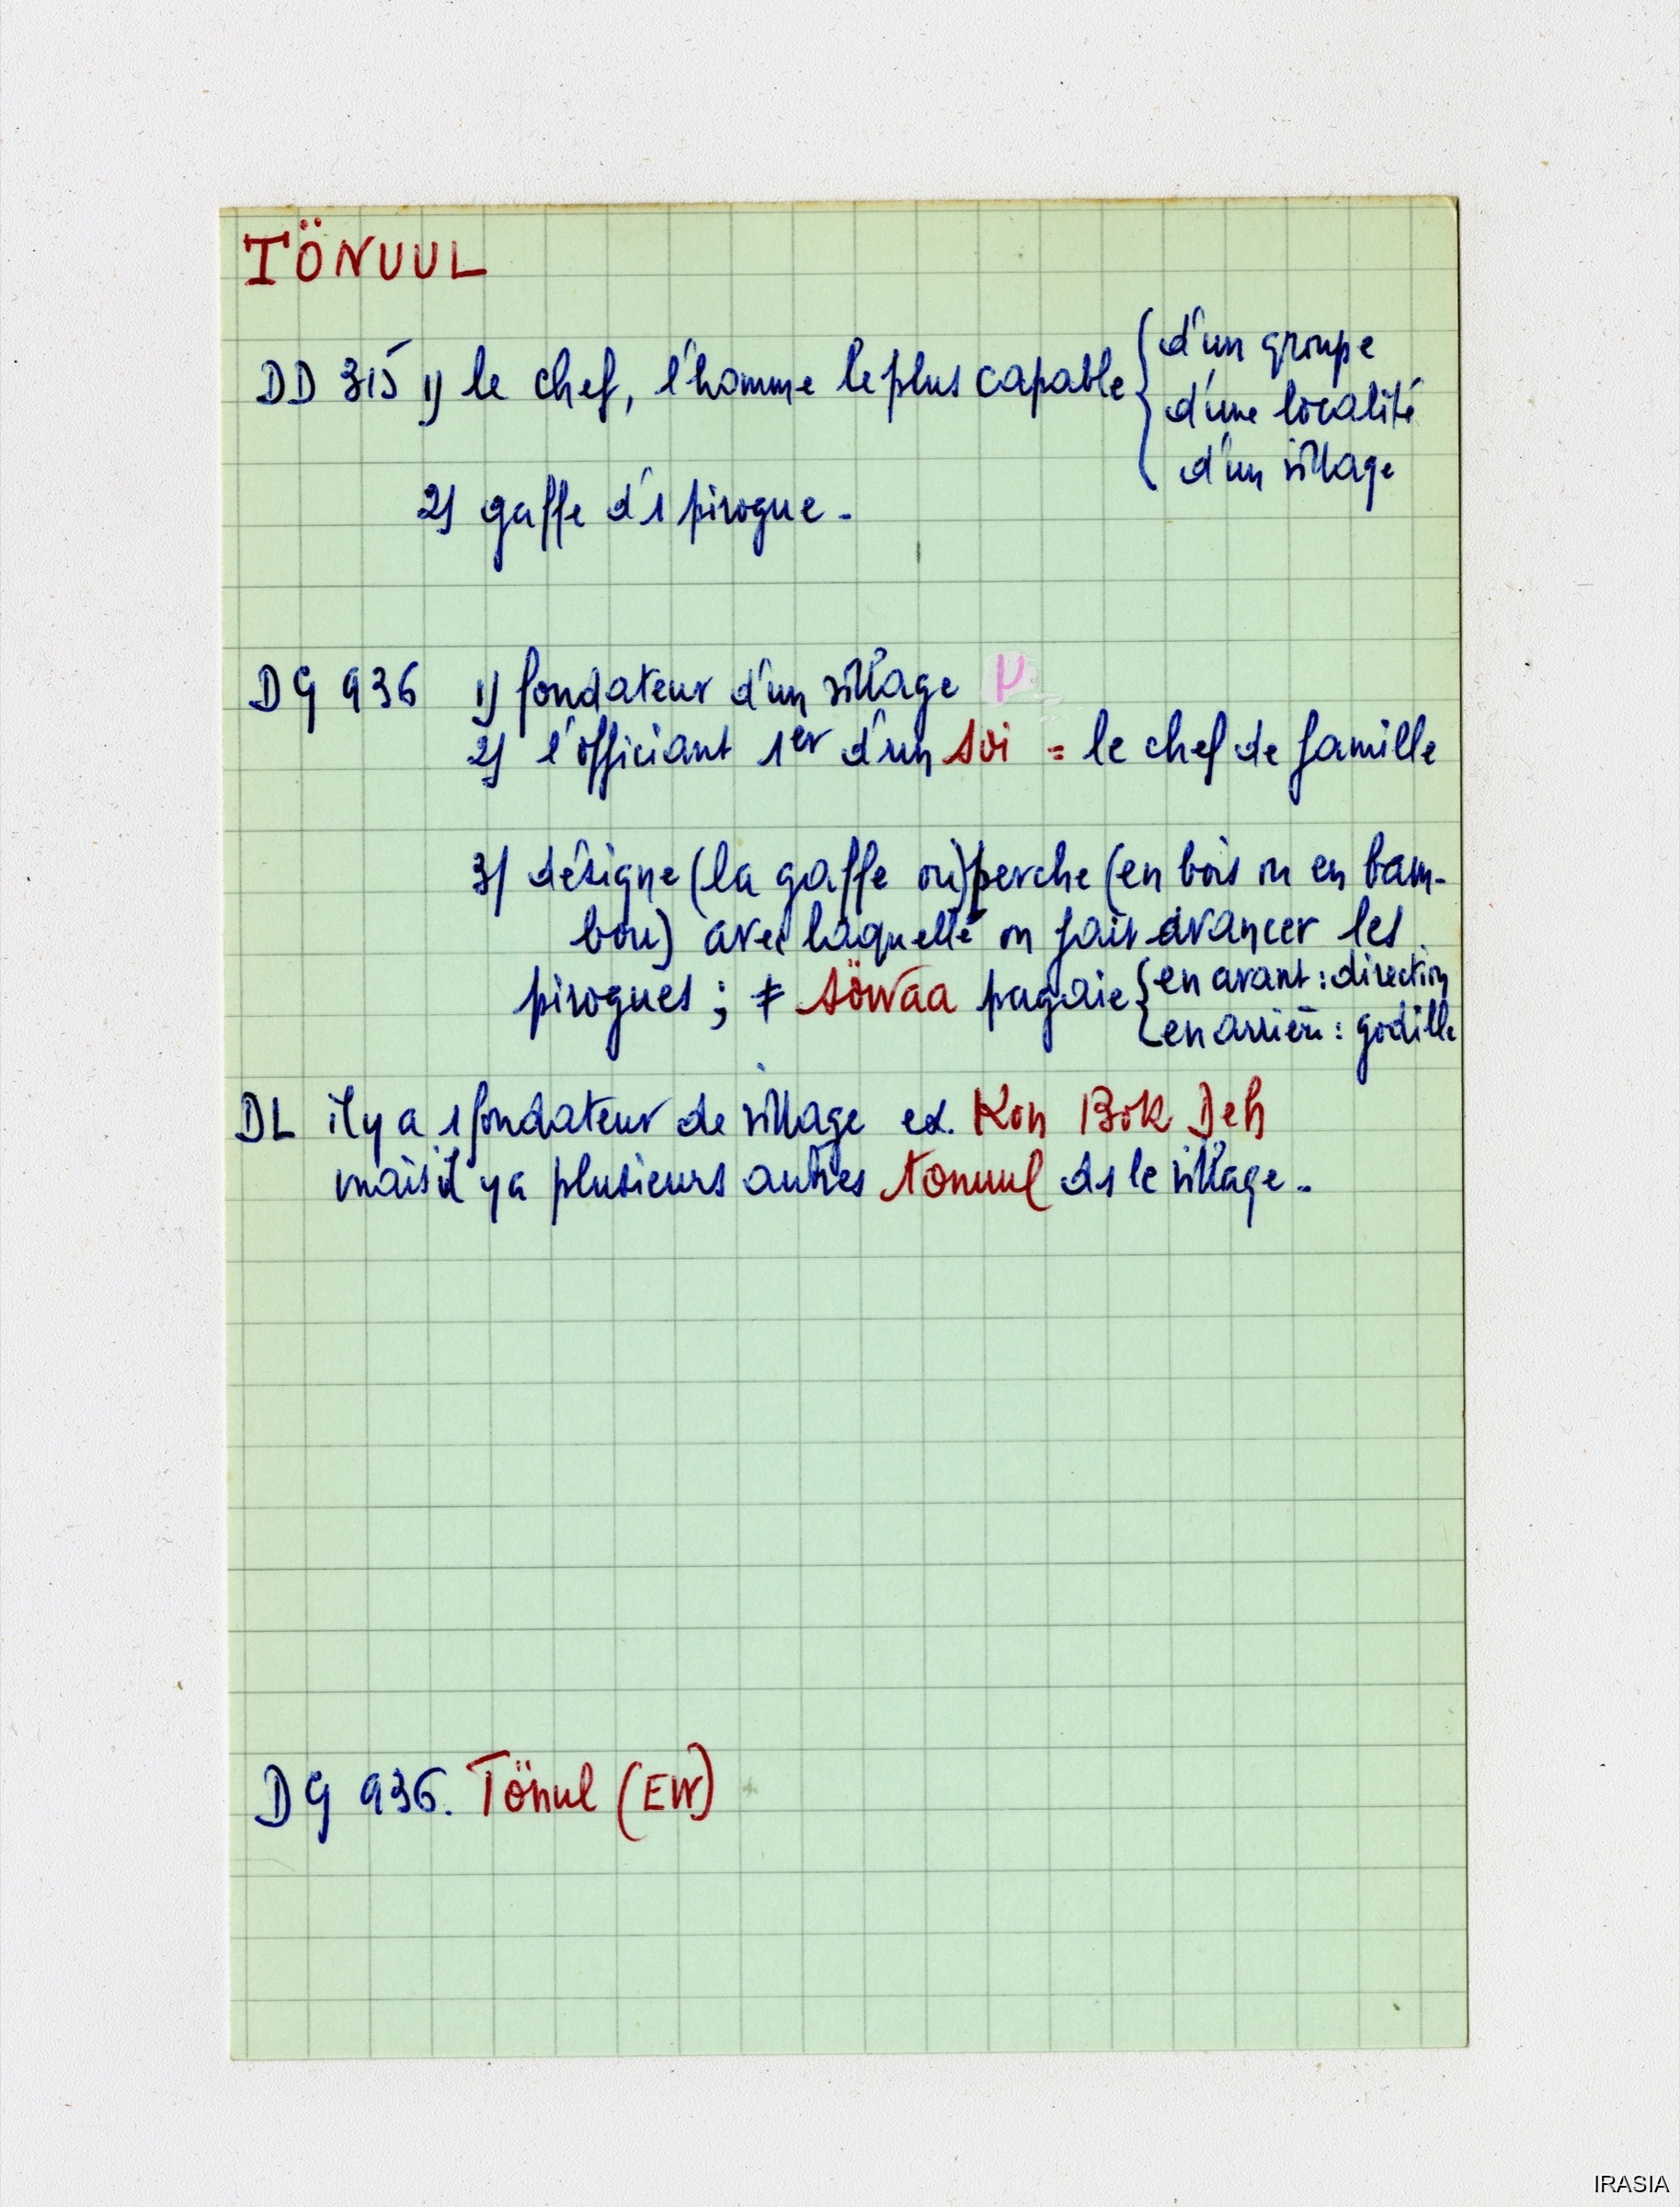 TÖNUUL
DD 315 1) le chef, l'homme le plus capable { d'un groupe
d'une localité
d'un village
2) gaffe d'1 pirogue.
DG 936 1) fondateur d'un village
2) l'officiant 1er d'un soi = le chef de famille
3) désigne (la gaffe ou) perche (en bois ou en bam-
bou) avec laquelle on fait avancer les
pirogues ; ≠ söwaa pagaie { en avant : direction
en arrière : godille
DL il y a 1 fondateur de village ex. Kon Bok Deh
mais il y a plusieurs autres tonuul ds le village.
DG 936. Tönul (EW)
IRASIA